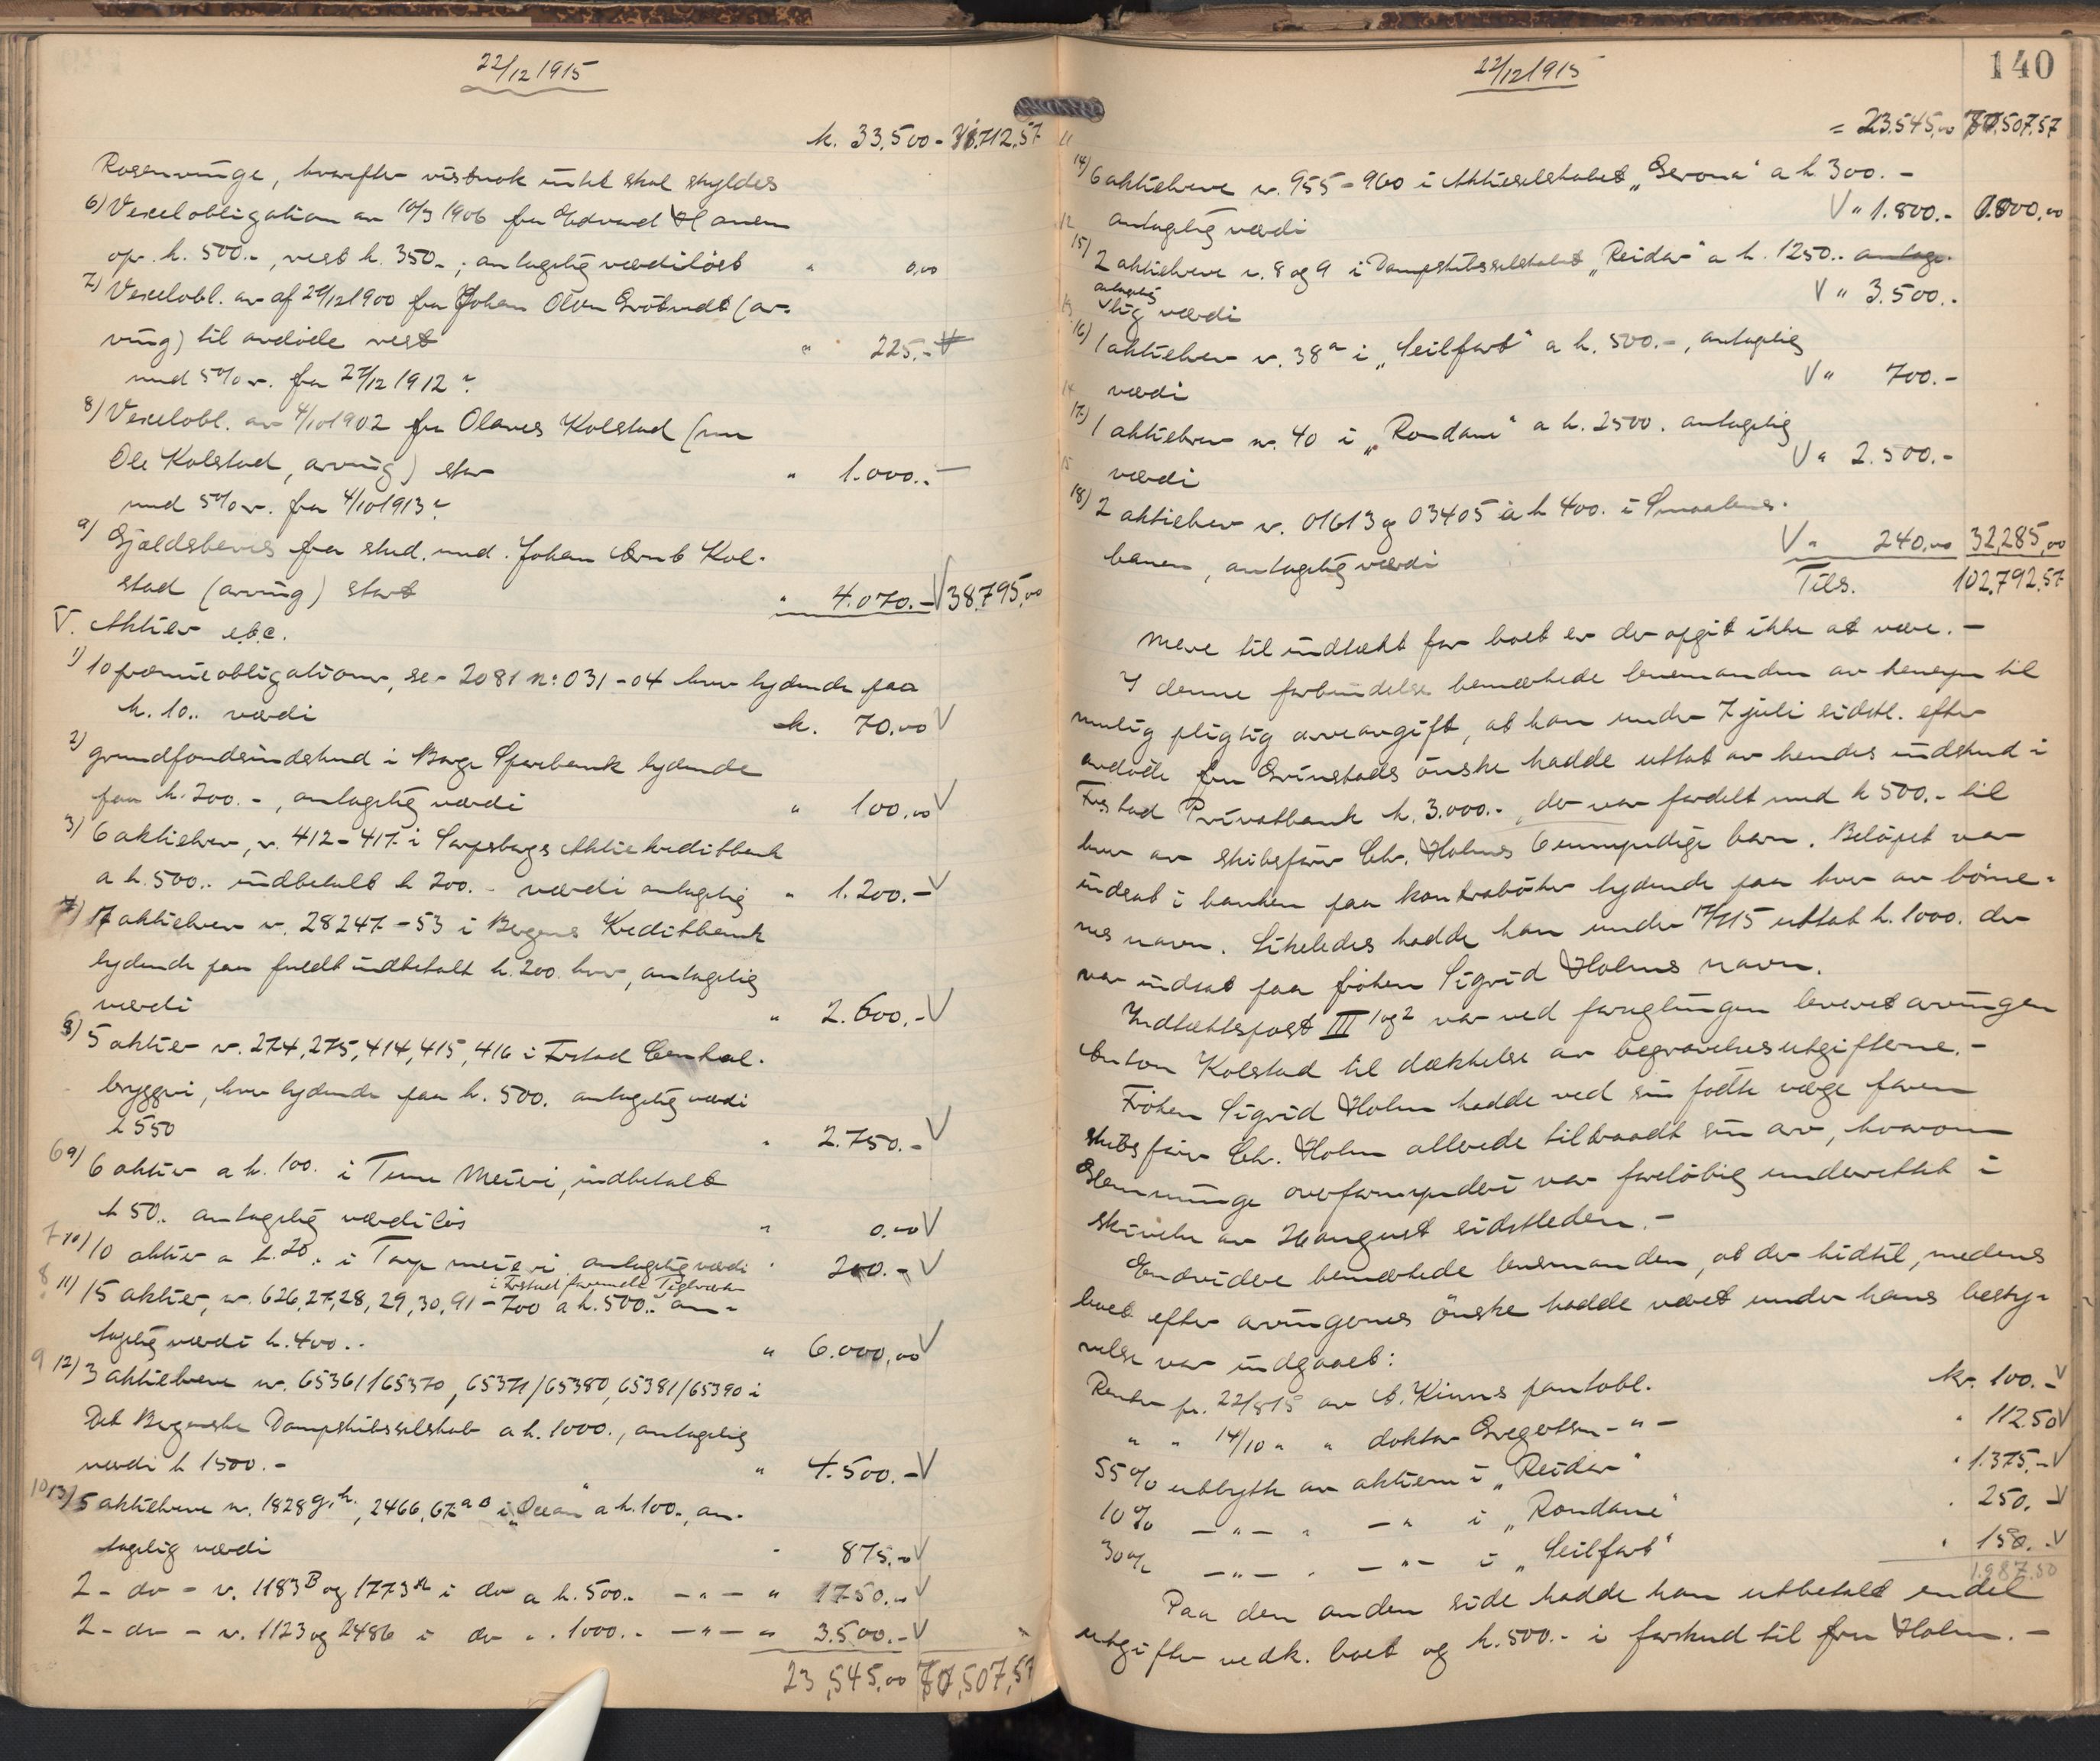 22/12 1915
k. 33.500 - 31.712,57
Rosenvinge, hvorefter vistnok intet skal skyldes
6) Vexelobligation av 10/3 1906 fra Edvard Hansen
opr. k. 500.-, rest k. 350.-, antagelig værdiløst " 0,00
7) Vexelobl. av af 27/12 1900 fra Johan Olsen Grötvedt (ar-
ving) til avdöde rest " 225.-
med 5% r. fra 27/12 1912.
8) Vexelobl. av 4/10 1902 fra Olaves Kolstad (nu
Ole Kolstad, arving) stor " 1.000.-
med 5% r. fra 4/10 1913.
9) Gjældsbevis fra stud. med. Johan Arnt Kol-
stad (arving) stort " 4.070.- V 38.795,00
V. Aktier etc.
1) 10 præmieobligationer, se- 2081 no: 031-04 hver lydende paa
k. 10.. værdi k. 70,00 V
2) grundfondsindskud i Borge Sparebank lydende
paa k. 200.-, antagelig værdi " 100,00 V
3) 6 aktiebrev, nr. 412-417 i Sarpsborgs Aktiekreditbank
a k. 500.. indbetalt k 200.- værdi antagelig " 1.200.- V
7) 17 aktiebrev nr. 28247-53 i Bergens Kreditbank
lydende paa fuldt indbetalt k. 200 hver, antagelig
værdi " 2.600.- V
8) 5 aktier nr. 274, 275, 414, 415, 416 i Frstad Central-
bryggeri, hver lydende paa k. 500. antagelig værdi
k 550 " 2.750.- V
6 9) 6 aktier a k. 100. i Tune Meieri, indbetalt
k 50. antagelig værdilös " 0,00 V
7 10) 10 aktier a k. 20. i Torp meieri antagelig værdi " 200.- V
i Frstad forenede Teglverker
8 11) 15 aktier, nr. 626, 27, 28, 29, 30, 91-700 a k. 500.. an-
tagelig værdi k. 400.. " 6.000,00 V
9 12) 3 aktiebreve nr. 65361/65370, 65371/65380, 65381/65390 i
Det Bergenske Dampskibsselskab a k. 1000., antagelig
værdi k 1500.- " 4.500.- V
10 13) 5 aktiebreve nr. 1828 g, h, 2466, 67 a B i "Ocean" a k. 100., an-
tagelig værdi " 875.- V
2 - do - nr. 1183 B og 1773 A i do a k. 500.. - " - " 1750.- V
2 - do - nr. 1123 og 2486 i do " . 1000.. - " - " 3.500.- V
23,545,00 70,507,57
22/12 1915
140
= 23.545,00 70.507,57
11
14) 6 aktiebreve nr. 955-960 i Aktieselskabet "Gerona" a k 300.-
antagelig værdi V " 1.800.- 1.800,00
12
15) 2 aktiebreve nr. 8 og 9 i Dampskibsselskabet "Reidar" a k. 1250.. antage-
antagelig
lig værdi V " 3.500.-
13
16) 1 aktiebrev nr. 38 a i "Seilfart" a k. 500.-, antagelig
værdi V " 700.-
14
17) 1 aktiebrev nr. 40 i "Rondane" a k. 2500. antagelig
værdi V " 2.500.-
15
18) 2 aktiebrev nr. 01613 og 03405 à k 400. i Smaalens-
banen, antagelig værdi V " 240,00 32,285,00
Tils. 102.792.57
Mere til indtækt for boet er der opgit ikke at være.-
I denne forbindelse bemerkede lensmanden av hensyn til
mulig pligtig arveavgift, at han under 7 juli sidstl. efter
avdöde fru Grinstads önske hadde uttat av hendes indskud i
Frstad Privatbank k. 3.000.-, der var fordelt med k 500.- til
hver av skibsfører Chr. Holms 6 umyndige barn. Beløpet var
indsat i banken paa kontrabøker lydende paa hver av börne-
nes navn. Likeledes hadde han under 17/7 15 uttat k. 1000. der
var indsat paa fröken Sigrid Holms navn.
Indtæktspost III 1 og 2 var ved forseglingen leveret arvingen
Anton Kolstad til dækkelse av begravelsesutgifterne.-
Fröken Sigrid Holm hadde ved sin födte verge faren
skibsförer Chr. Holm allerede tiltraadt sin arv, hvorom
Glemminge overformynderi var foreløbig underrettet i
skrivelse av 26 august sidstleden.-
Endvidere bemerkede lensmanden, at der hidtil, medens
boet efter arvingernes önske hadde været under hans besty-
relse var indgaaet:
Renter pr. 22/8 15 av A. Kinns pantobl. kr. 100.- V
" " 14/10 " " doktor Gregersen - " - " 112.50 V
55% utbytte av aktierne i "Reidar" " 1.375,- V
10% - " - " - " i "Rondane" " 250.- V
30% - " - " - " - i "Seilfart" " 150.- V
1.987.50
Paa den anden side hadde han utbetalt endel
utgifter vedk. boet og k. 500.- i forskud til fru Holm.-